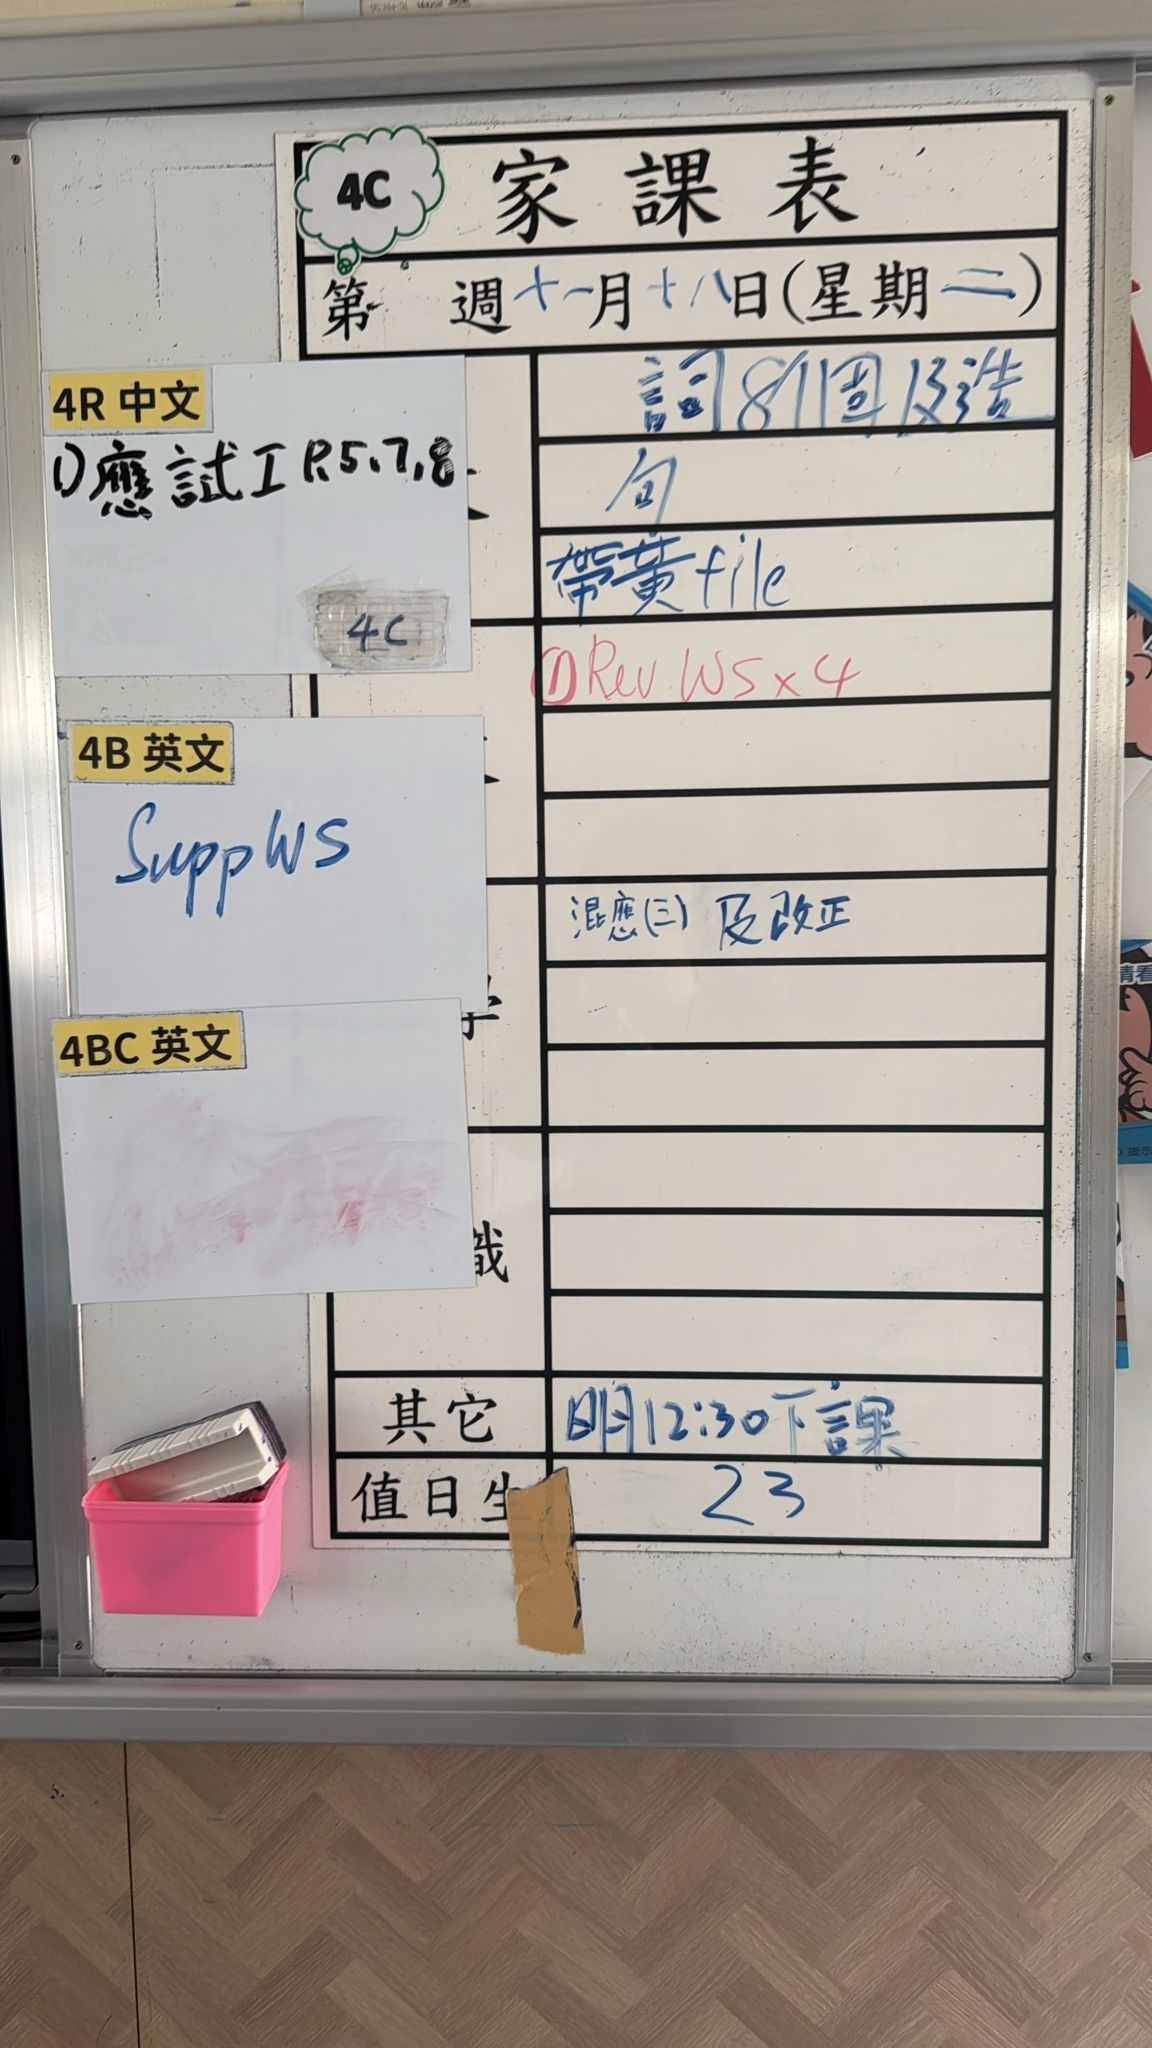 4C
家課表
第 週十一月十八日(星期二)
4R 中文
1) 應試工 P.5、7、8
4C
詞8/1個及造
句
帶黃file
4B 英文
Supp WS
① Rev WS x 4
4BC 英文
混應(三) 及改正
學
識
其它
明12:30下課
值日生
23
請看
提示